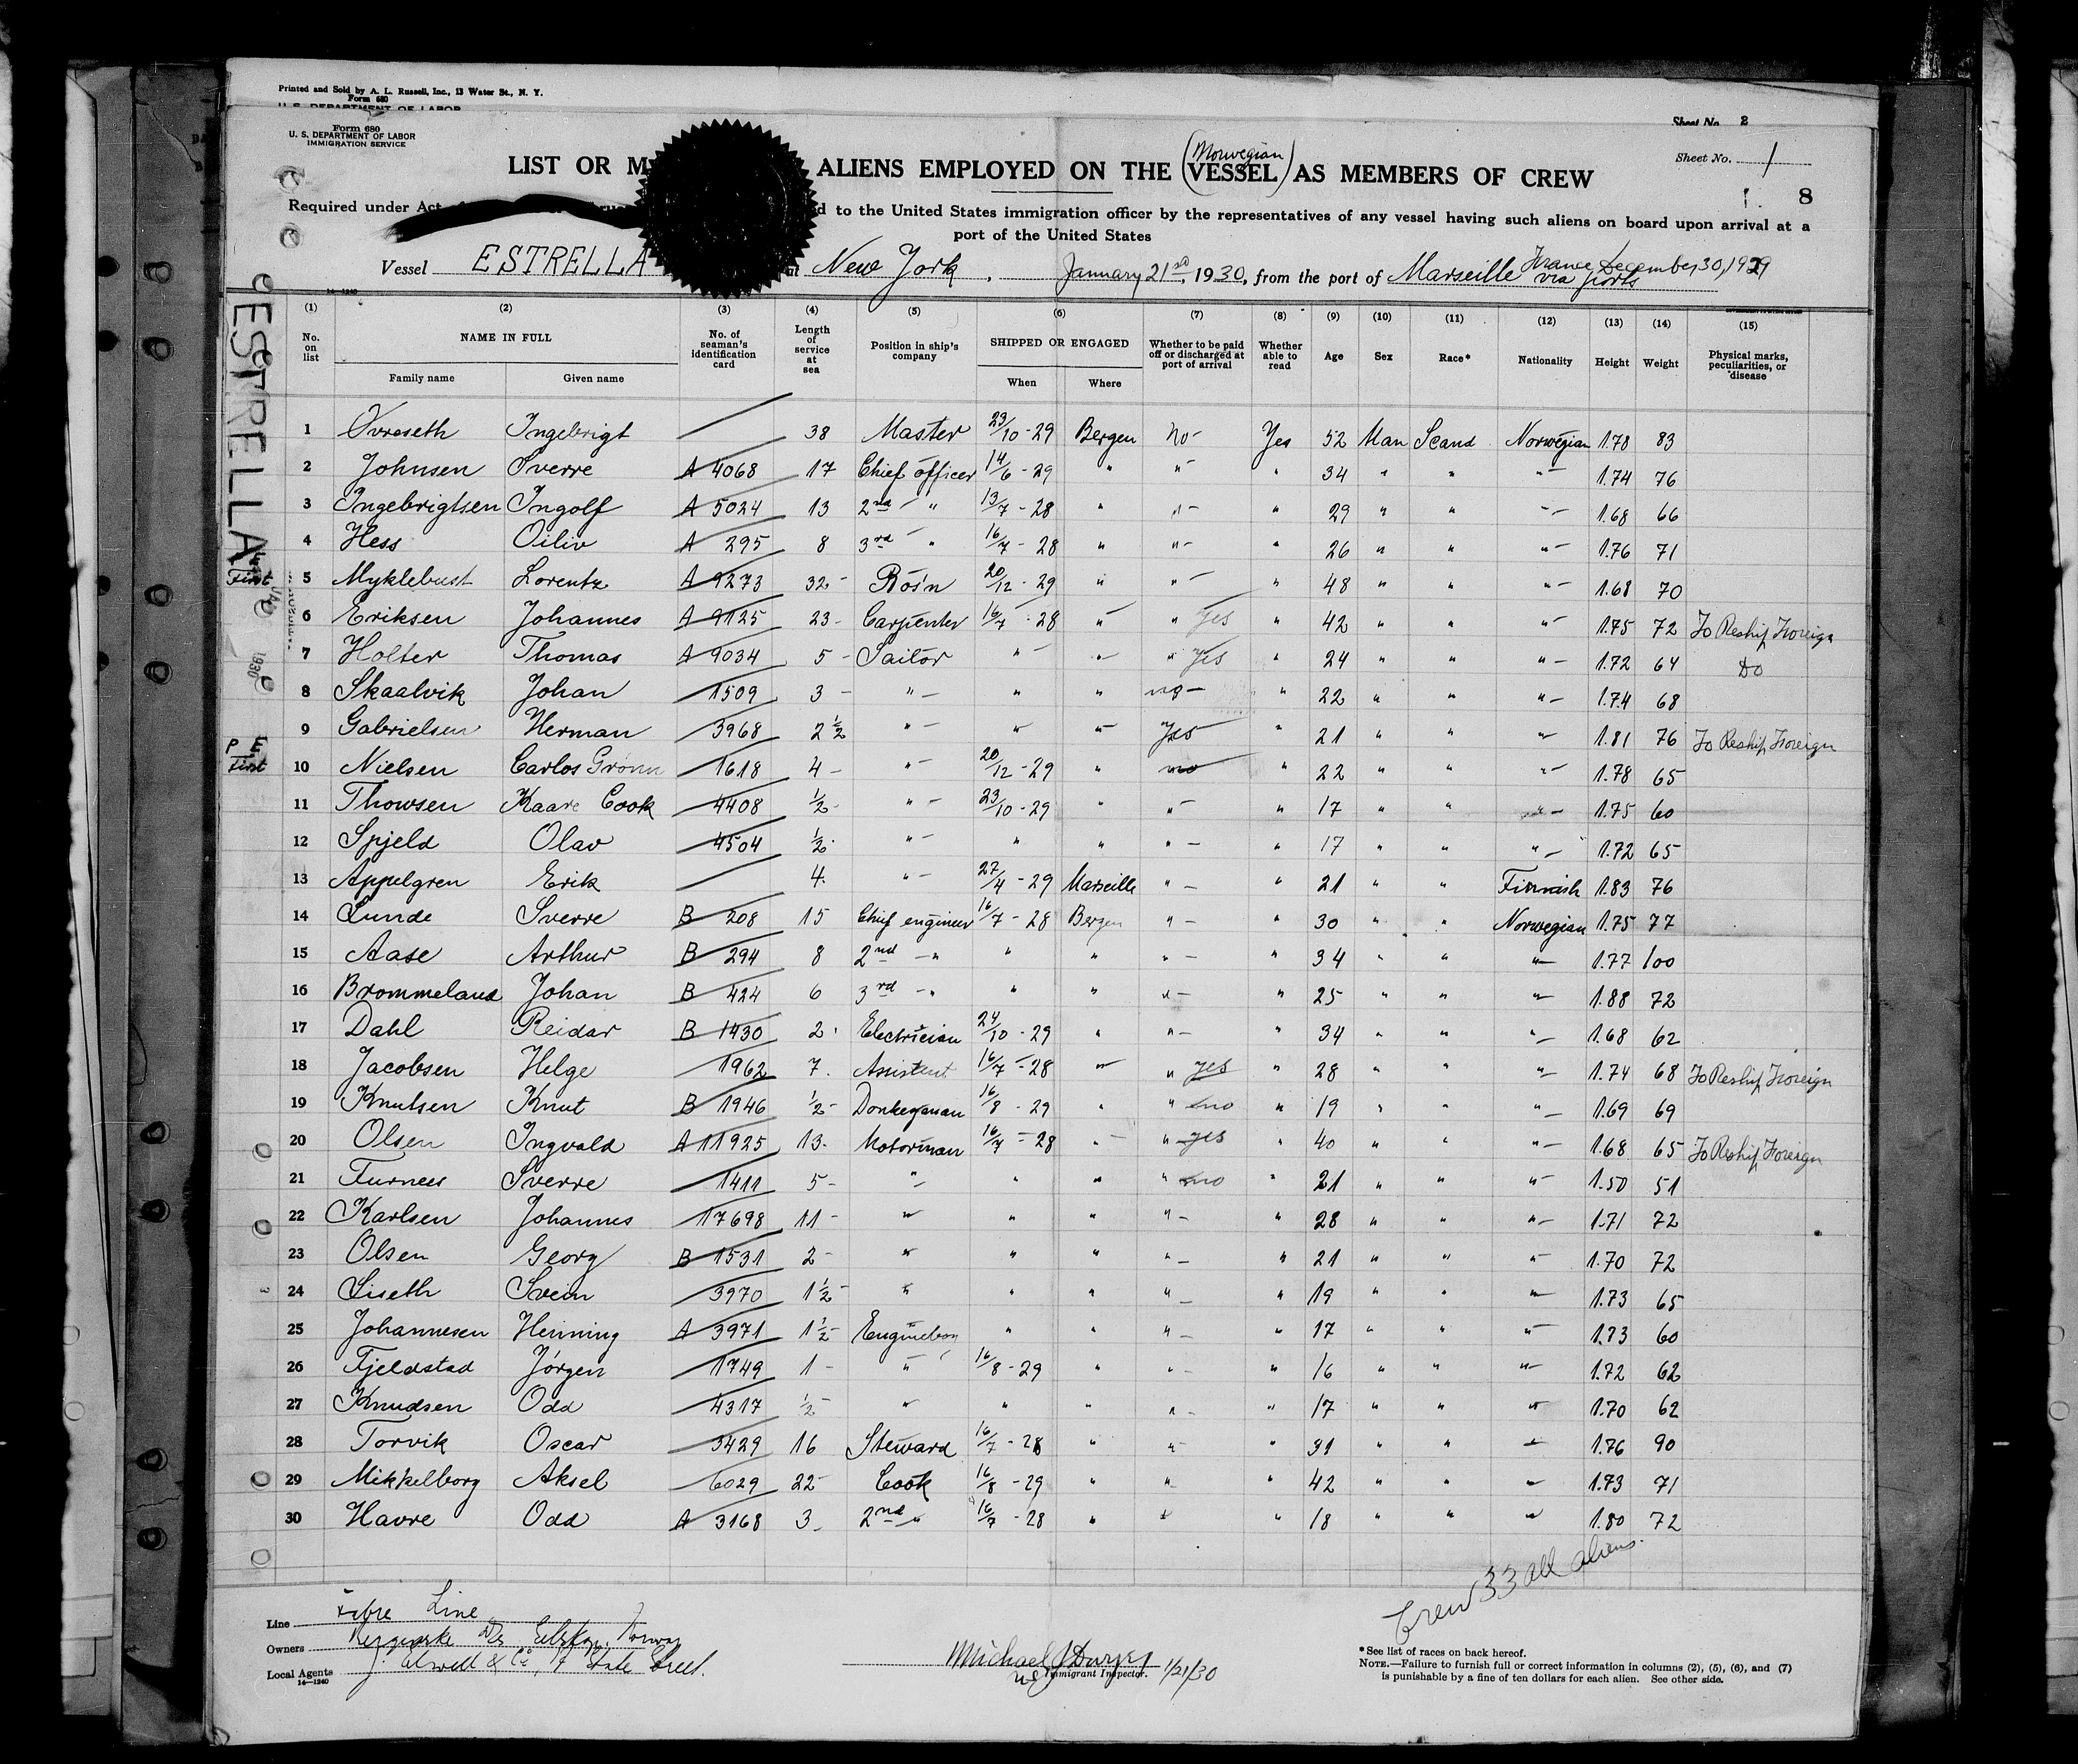 Printed and Sold by A. L. Russell, Inc., 13 Water St., N. Y.
Form 680
U. S. DEPARTMENT OF LABOR
Sheet No. 2
Form 680
U. S. DEPARTMENT OF LABOR
IMMIGRATION SERVICE
Sheet No. 1
LIST OR ALIENS EMPLOYED ON THE (Norwegian) VESSEL AS MEMBERS OF CREW
8
Required under Act to the United States immigration officer by the representatives of any vessel having such aliens on board upon arrival at a
port of the United States
Vessel ESTRELLA at New York, January 21st, 1930, from the port of Marseille France December 30, 1929 via ports
ESTRELLA
(1) (2) (3) (4) (5) (6) (7) (8) (9) (10) (11) (12) (13) (14) (15)
No. on list NAME IN FULL No. of seaman's identification card Length of service at sea Position in ship's company SHIPPED OR ENGAGED Whether to be paid off or discharged at port of arrival Whether able to read Age Sex Race* Nationality Height Weight Physical marks, peculiarities, or disease
Family name Given name When Where
1 Ovreseth Ingebrigt 38 Master 23/10-29 Bergen No- Yes 52 Man Scand Norwegian 1.78 83
2 Johnsen Sverre A 4068 17 Chief officer 14/6-29 " "- " 34 " " "- 1.74 76
3 Ingebrigtsen Ingolf A 5024 13 2nd - " 13/7-28 " "- " 29 " " "- 1.68 66
4 Hess Oiliv A 295 8 3rd - " 16/7-28 " "- " 26 " " "- 1.76 71
First 5 Myklebust Lorentz A 9273 32- Bos'n 20/12-29 " "- " 48 " " "- 1.68 70
6 Eriksen Johannes A 9125 23- Carpenter 16/7-28 " " Yes " 42 " " "- 1.75 72 To Reship Foreign
7 Holter Thomas A 9034 5- Sailor " " " Yes " 24 " " "- 1.72 64 Do
8 Skaalvik Johan 1509 3- "- " " no- " 22 " " "- 1.74 68
9 Gabrielsen Herman 3968 2 1/2 "- " " Yes " 21 " " " 1.81 76 To Reship Foreign
P E First 10 Nielsen Carlos Grönn 1618 4- "- 20/12-29 " no " 22 " " "- 1.78 65
11 Thowsen Kaare Cook 4408 1/2- "- 23/10-29 " "- " 17 " " "- 1.75 60
12 Spjeld Olav 4504 1/2- "- " " "- " 17 " " "- 1.72 65
13 Appelgren Erik 4. "- 27/4-29 Marseille "- " 21 " " Finnish 1.83 76
14 Lunde Sverre B 208 15 Chief engineer 16/7-28 Bergen "- " 30 " " Norwegian 1.75 77
15 Aase Arthur B 294 8 2nd -" " " "- " 34 " " "- 1.77 100
16 Brommeland Johan B 424 6 3rd -" " " "- " 25 " " "- 1.88 72
17 Dahl Reidar B 1430 2 Electrician 24/10-29 " "- " 34 " " "- 1.68 62
18 Jacobsen Helge 1962 7. Assistent 16/7-28 " " yes " 28 " " "- 1.74 68 To Reship Foreign
19 Knutsen Knut B 1946 1/2- Donkeyman 16/8-29 " " no " 19 " " "- 1.69 69
20 Olsen Ingvald A 11925 13- Motorman 16/7-28 " " yes " 40 " " "- 1.68 65 To Reship Foreign
21 Furnees Sverre 1411 5- " " " " no " 21 " " "- 1.50 51
22 Karlsen Johannes 17698 11- " " " "- " 28 " " "- 1.71 72
23 Olsen Georg B 1531 2- " " " "- " 21 " " "- 1.70 72
24 Liseth Svein 3970 1 1/2- " " " "- " 19 " " "- 1.73 65
25 Johannesen Henning A 3971 1 1/2- Engineboy " " "- " 17 " " "- 1.73 60
26 Fjeldstad Jörgen 1749 1- " 16/8-29 " "- " 16 " " "- 1.72 62
27 Knudsen Odd 4317 1/2- " " " "- " 17 " " " 1.70 62
28 Torvik Oscar 3429 16 Steward 16/7-28 " "- " 31 " " "- 1.76 90
29 Mikkelborg Aksel 6029 22- Cook 16/8-29 " " " 42 " " "- 1.73 71
30 Havre Odd A 3168 3- 2nd " 16/7-28 " " " 18 " " " 1.80 72
Crew 33 all aliens.
Line Fabre Line
Owners Bergenske Norway
Local Agents J. Elwell & Co, 17 State Street.
14—1240
Michael J
Immigrant Inspector. 1/21/30
*See list of races on back hereof.
NOTE.—Failure to furnish full or correct information in columns (2), (5), (6), and (7)
is punishable by a fine of ten dollars for each alien. See other side.